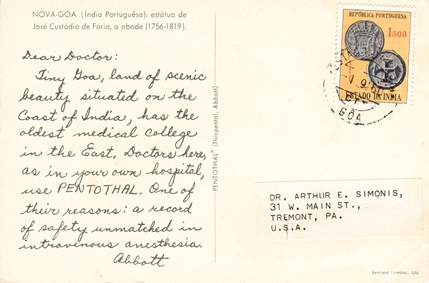 NOVA-GOA (Índia Portuguêsa): estátua de
José Custódio de Faria, o abade (1756-1819).
Dear Doctor:
Tiny Goa, land of scenic
beauty situated on the
Coast of India, has the
oldest medical college
in the East. Doctors here,
as in your own hospital,
use PENTOTHAL. One of
their reasons: a record
of safety unmatched in
intravenous anesthesia.
Abbott
PENTOTHAL® (Thiopental, Abbott)
REPÚBLICA PORTUGUESA
1$00
ESTADO DA INDIA
GOA
DR. ARTHUR E. SIMONIS,
31 W. MAIN ST.,
TREMONT, PA.
U.S.A.